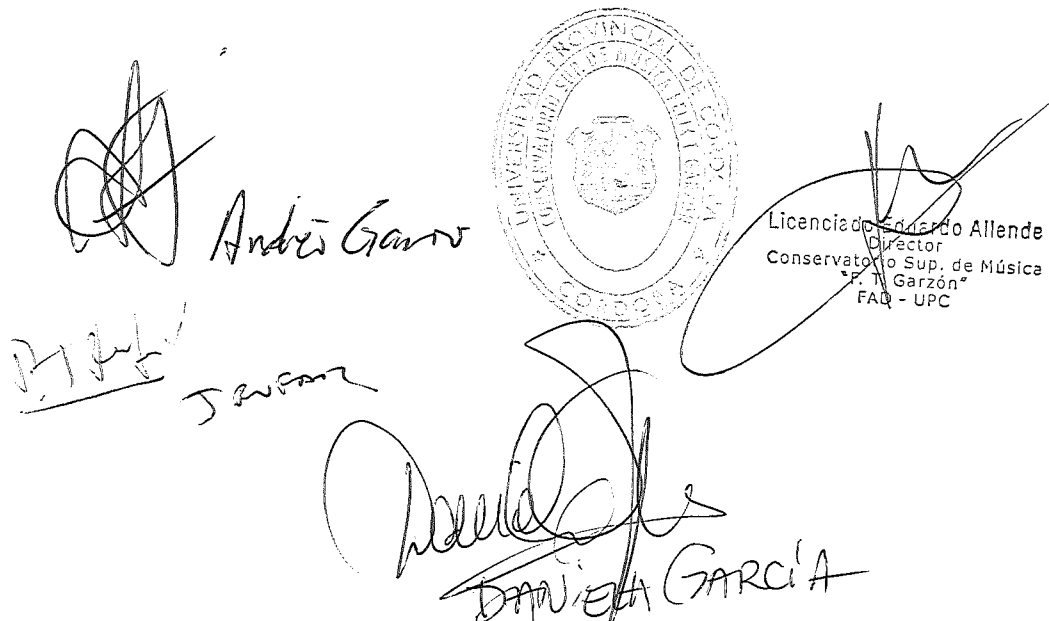 UNIVERSIDAD PROVINCIAL DE CÓRDOBA
CONSERVATORIO SUP. DE MÚSICA FELIX T. GARZÓN
CÓRDOBA
Andrés
Licenciado Eduardo Allende
Director
Conservatorio Sup. de Música
"F. T. Garzón"
FAD - UPC
DANiELA GARCÍA